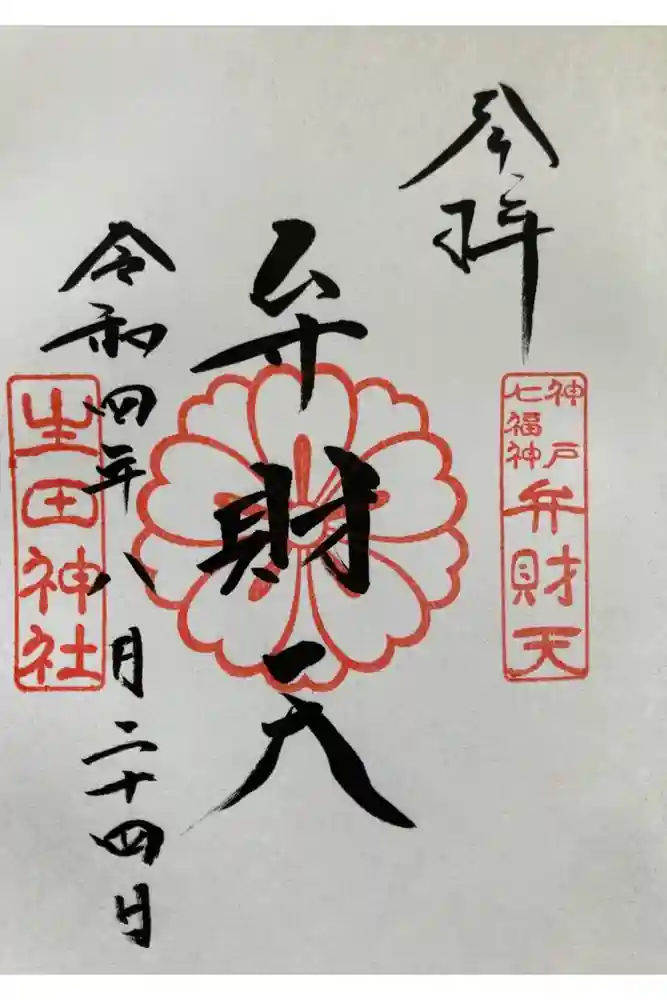 奉拝
神戸
七福神
弁財天
弁財天
令和四年八月二十四日
生田神社